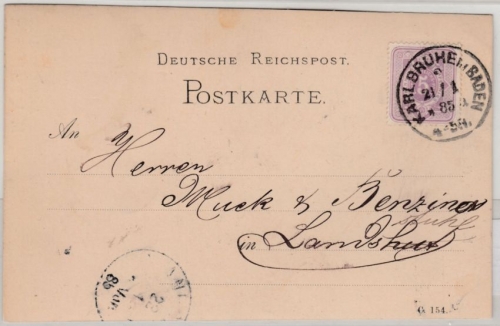 DEUTSCHE REICHSPOST.
POSTKARTE.
KARLSRUHE I. BADEN
21 / 1
85
4-5N.
An Herren
Muck & Benzinger
in Landshut
G. 154.